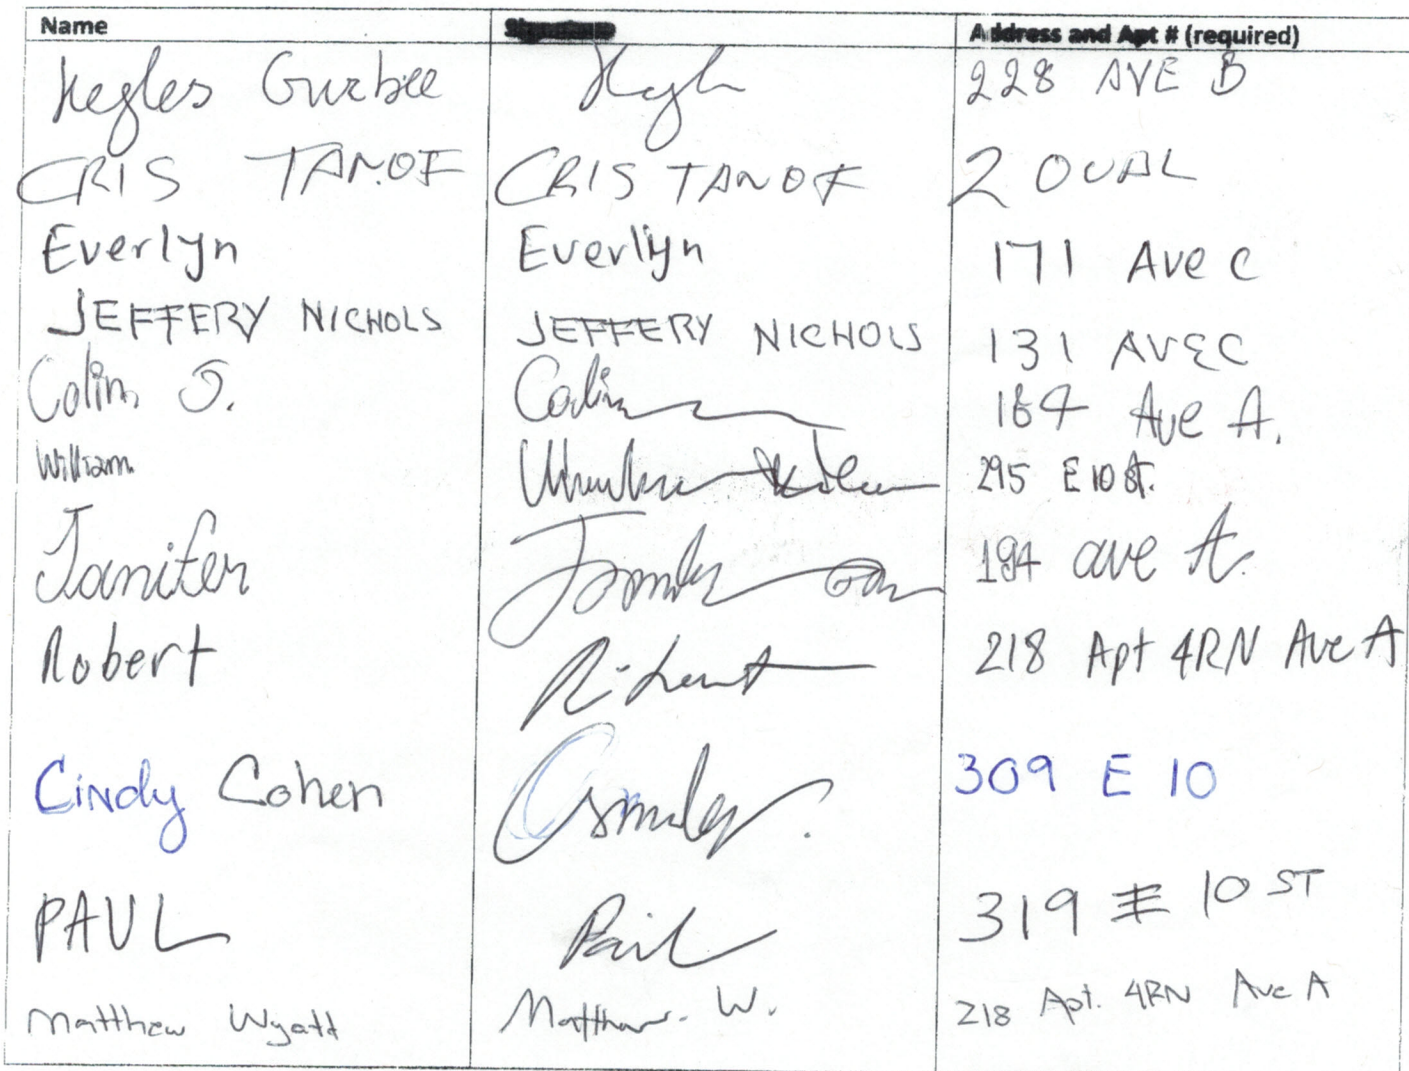 Name Signature Address and Apt # (required)
Hegles Gurbee 228 AVE B
CRIS TANOF CRIS TANOF 2 OVAL
Everlyn Everlyn 171 Ave C
JEFFERY NICHOLS JEFFERY NICHOLS 131 AVE C
Colin O. Colin 184 Ave A.
William 295 E 10 St.
Janifer 194 ave A.
Robert Robert 218 Apt 4RN Ave A
Cindy Cohen 309 E 10
PAUL Paul 319 E 10 ST
Matthew Wyatt Matthew W. 218 Apt. 4RN Ave A